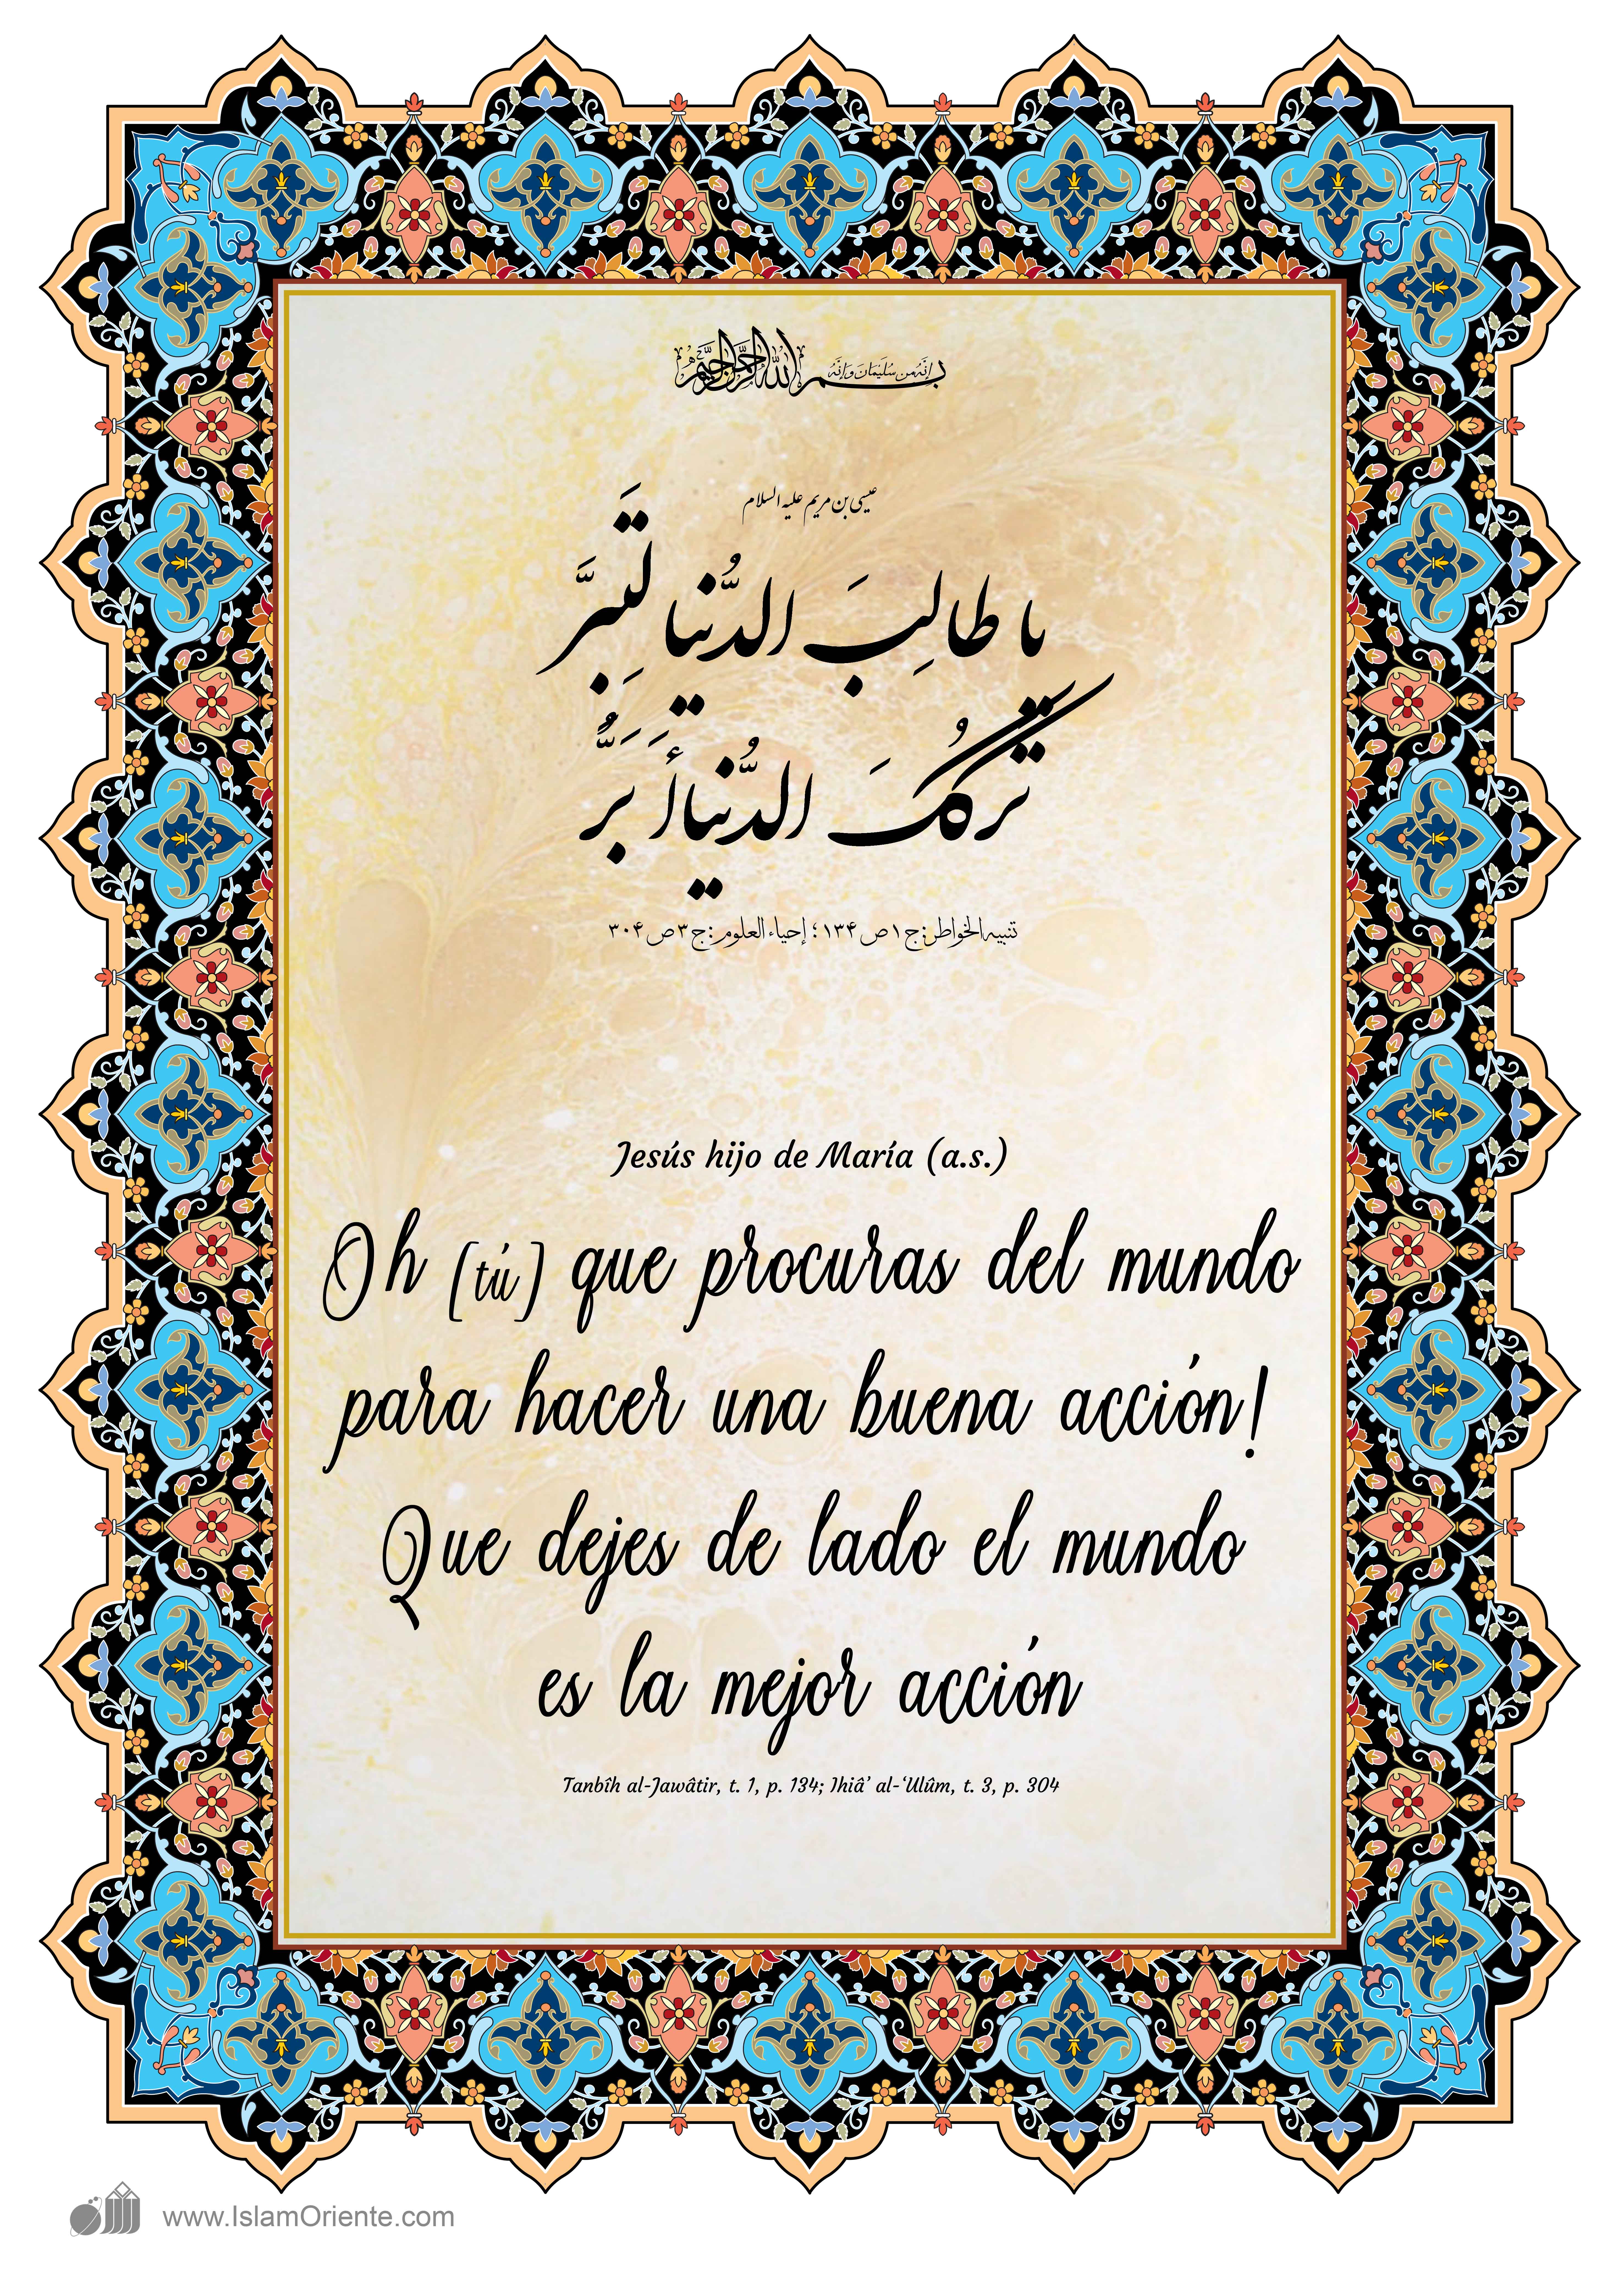 إنه من سليمان وإنه بسم الله الرحمن الرحيم
عیسی بن مریم علیه السلام
یا طالِبَ الدُّنیا لَتَبَرَّ
تَرکُکَ الدُّنیا أَبَرُّ
تنبیه الخواطر: ج ۱ ص ۱۳۴؛ إحیاء العلوم: ج ۳ ص ۳۰۴
Jesús hijo de María (a.s.)
Oh (tú) que procuras del mundo
para hacer una buena acción!
Que dejes de lado el mundo
es la mejor acción
Tanbîh al-Jawâtir, t. 1, p. 134; Ihiâ’ al-‘Ulûm, t. 3, p. 304
www.IslamOriente.com